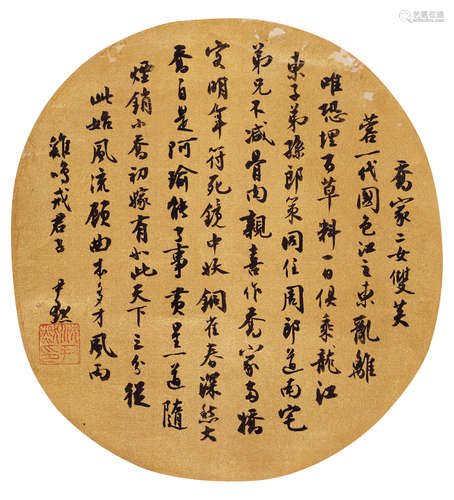 喬家二女雙芙
蓉一代國色江之東亂離
唯恐埋百草料一日俱乘龍江
東子弟孫郎策同住周郎道南宅
弟兄不減骨肉親喜作喬家
明年符死鏡中妖銅雀春深愁大
喬自是阿瑜能了事黃星一道隨
煙銷小喬初嫁有如此天下三分從
此始風流顧曲本多才風雨
雞鳴戒君子
尹默